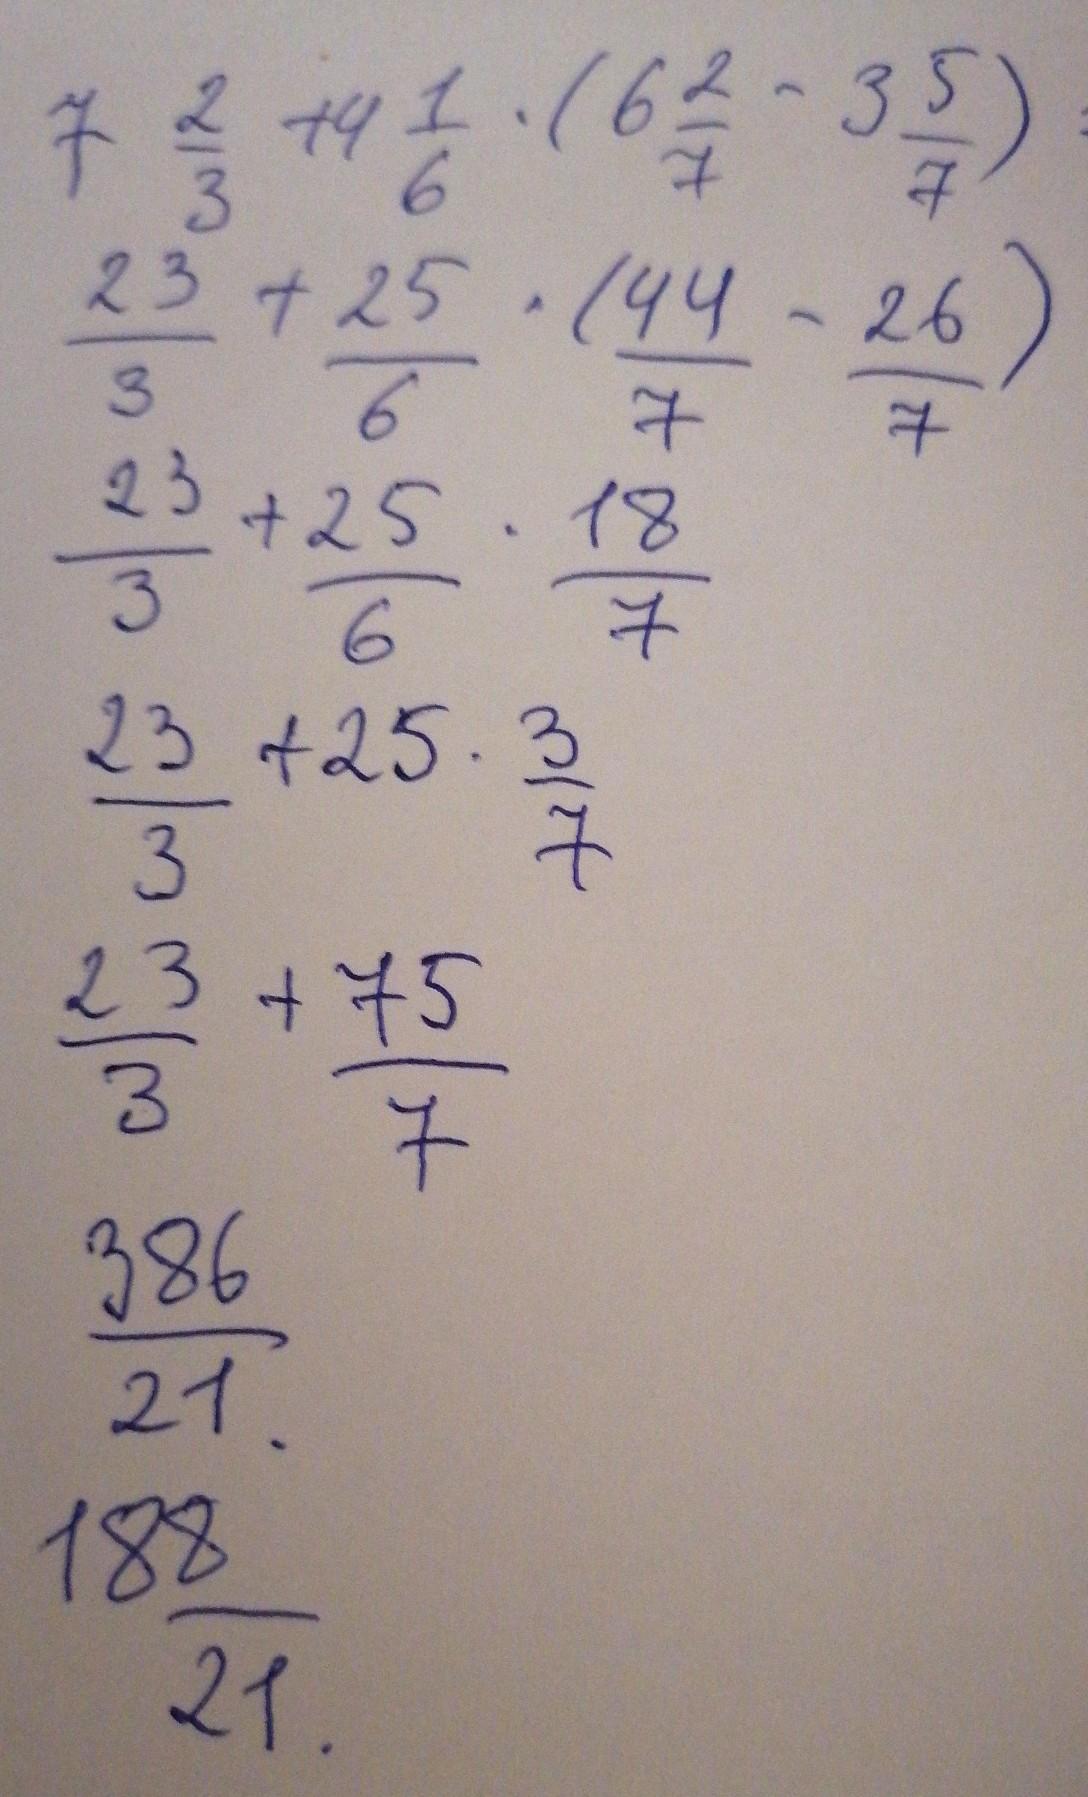 7 2/3 + 4 1/6 · (6 2/7 - 3 5/7) =
23/3 + 25/6 · (44/7 - 26/7)
23/3 + 25/6 · 18/7
23/3 + 25 · 3/7
23/3 + 75/7
386/21.
18 8/21.